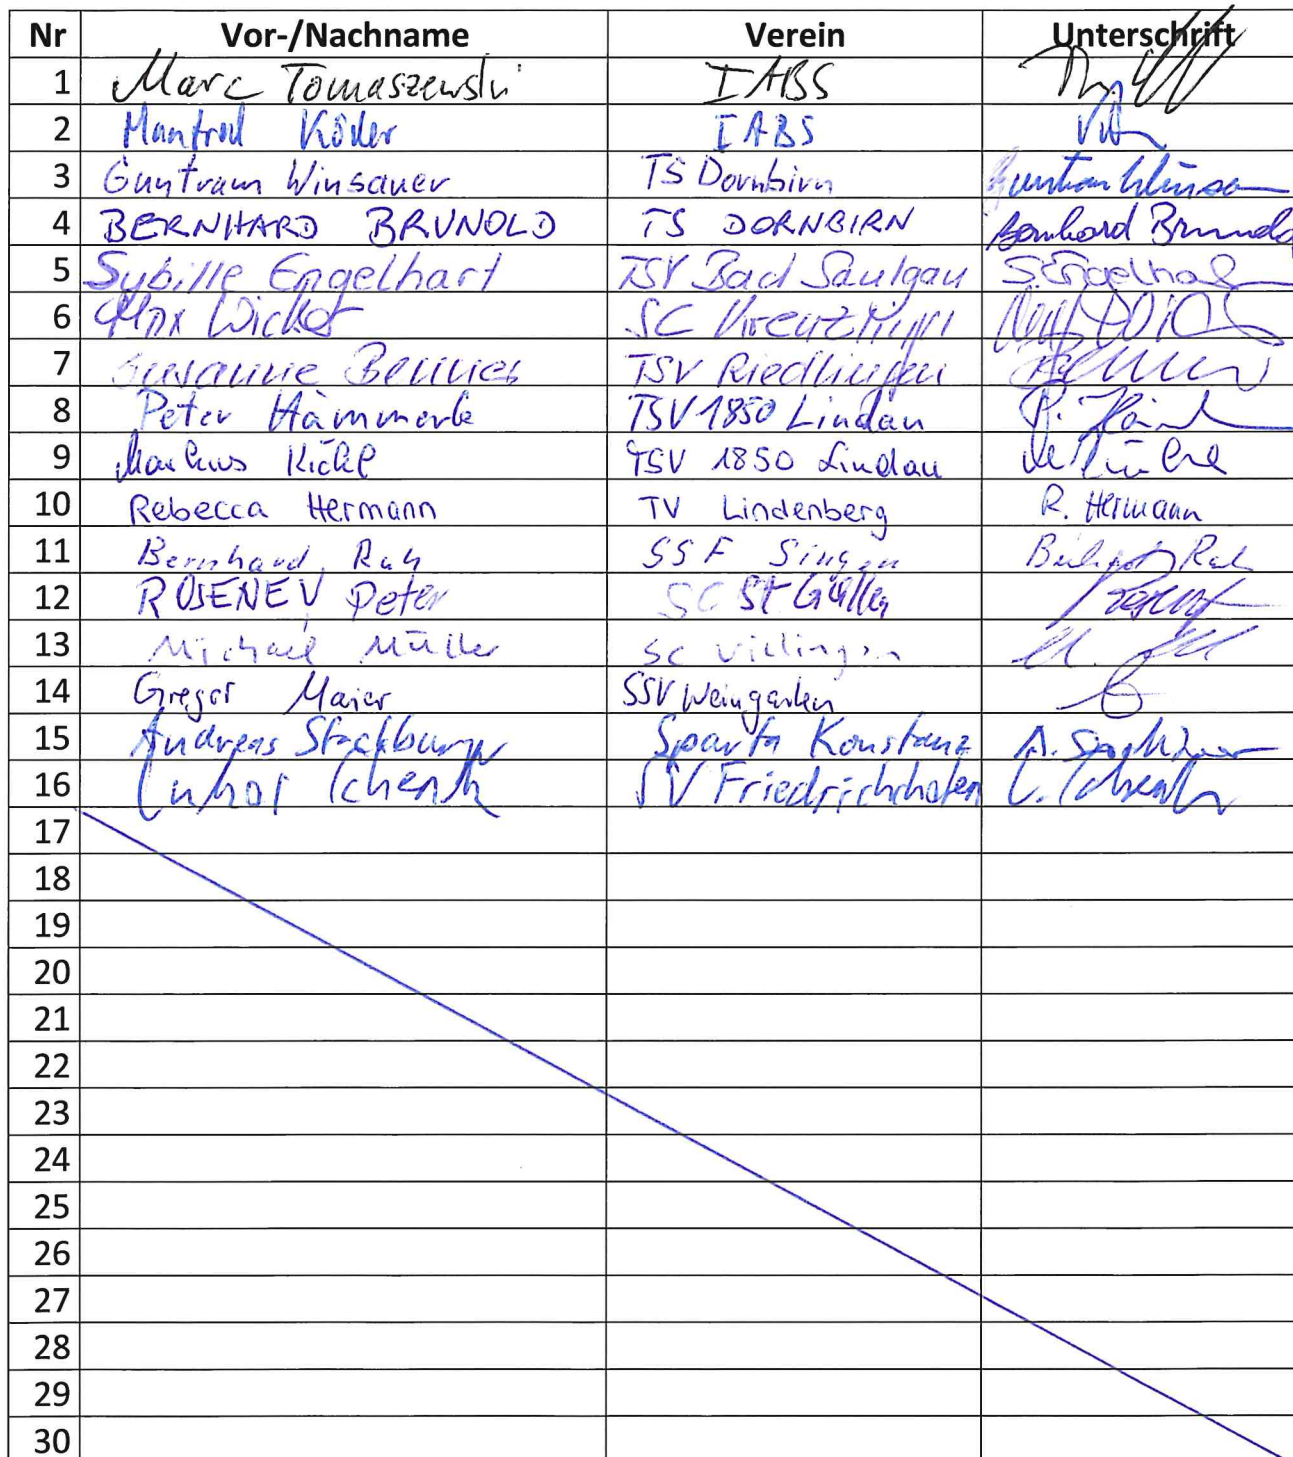 Nr Vor-/Nachname Verein Unterschrift
1 Marc Tomaszewski IABS
2 Manfred IABS
3 Guntram Winsauer TS Dornbirn Guntram Winsa
4 BERNHARD BRUNOLD TS DORNBIRN Bernhard Brunold
5 Sybille Engelhart TSV Bad Saulgau S. Engelhart
6 Max Wicker SC Kreuzlingen
7 Susanne TSV Riedlingen
8 Peter Hämmerle TSV 1850 Lindau P.
9 Markus TSV 1850 Lindau
10 Rebecca Hermann TV Lindenberg R. Hermann
11 Bernhard Rah SSF Singen
12 Peter SC St Gallen
13 Michael Müller SC Villingen
14 Gregor Maier SSV Weingarten
15 Andreas Sparta Konstanz A.
16 SV Friedrichshafen
17
18
19
20
21
22
23
24
25
26
27
28
29
30